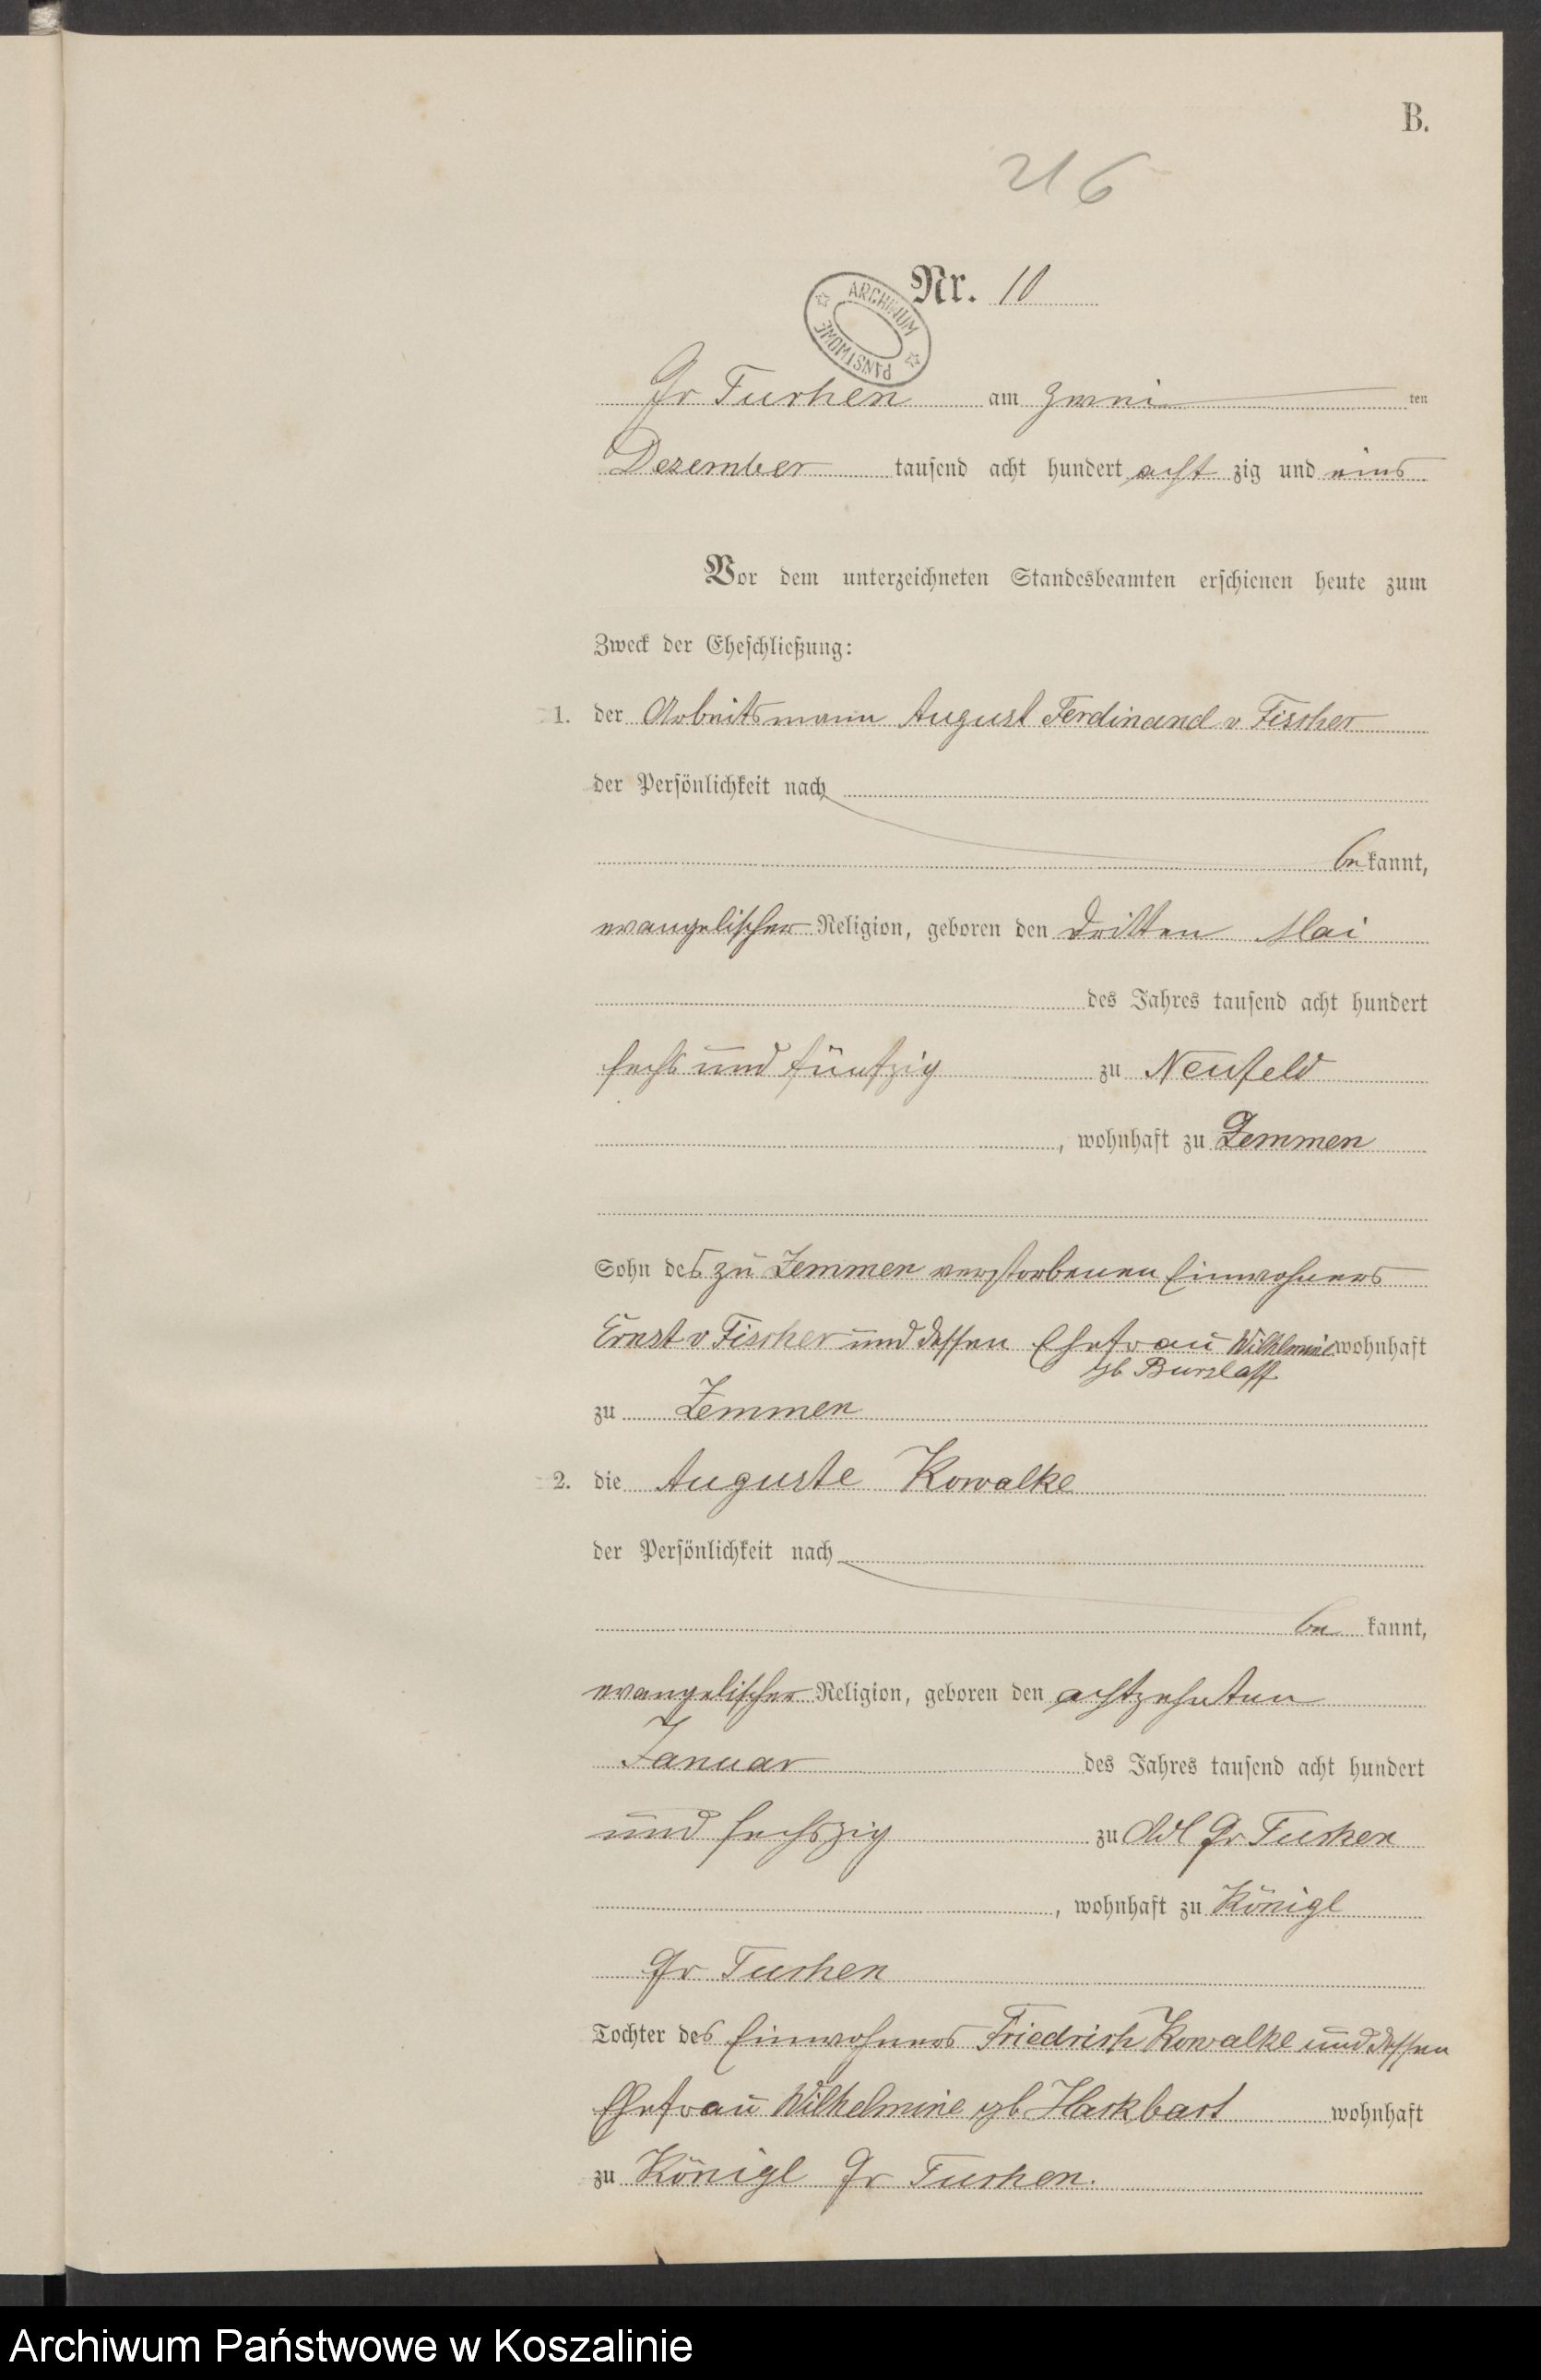 B.
216
Nr. 10
ARCHIWUM PAŃSTWOWE
Gr Tuchen am zwei ten
Dezember tausend acht hundert acht zig und eins
Vor dem unterzeichneten Standesbeamten erschienen heute zum
Zweck der Eheschließung:
1. der Arbeitsmann August Ferdinand v Fischer
der Persönlichkeit nach
be kannt,
evangelischer Religion, geboren den dritten Mai
des Jahres tausend acht hundert
sechs und fünfzig zu Neufeld
, wohnhaft zu Zemmen
Sohn des zu Zemmen verstorbenen Einwohners
Ernst v Fischer und dessen Ehefrau Wilhelmine wohnhaft
gb Burzlaff
zu Zemmen
2. die Auguste Kowalke
der Persönlichkeit nach
be kannt,
evangelischer Religion, geboren den achtzehnten
Januar des Jahres tausend acht hundert
und sechszig zu Adl Gr Tuchen
, wohnhaft zu Königl
Gr Tuchen
Tochter des Einwohners Friedrich Kowalke und dessen
Ehefrau Wilhelmine gb Hackbart wohnhaft
zu Königl Gr Tuchen.
Archiwum Państwowe w Koszalinie